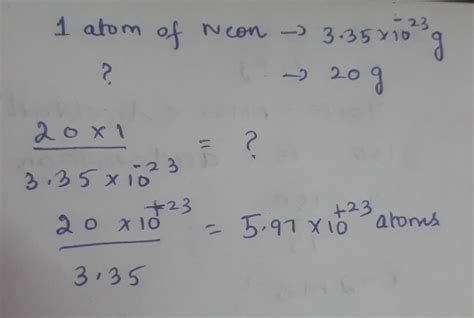 1 atom of Neon → 3.35×10⁻²³ g
? → 20 g
20 × 1 / 3.35 × 10⁻²³ = ?
20 × 10⁺²³ / 3.35 = 5.97 × 10⁺²³ atoms